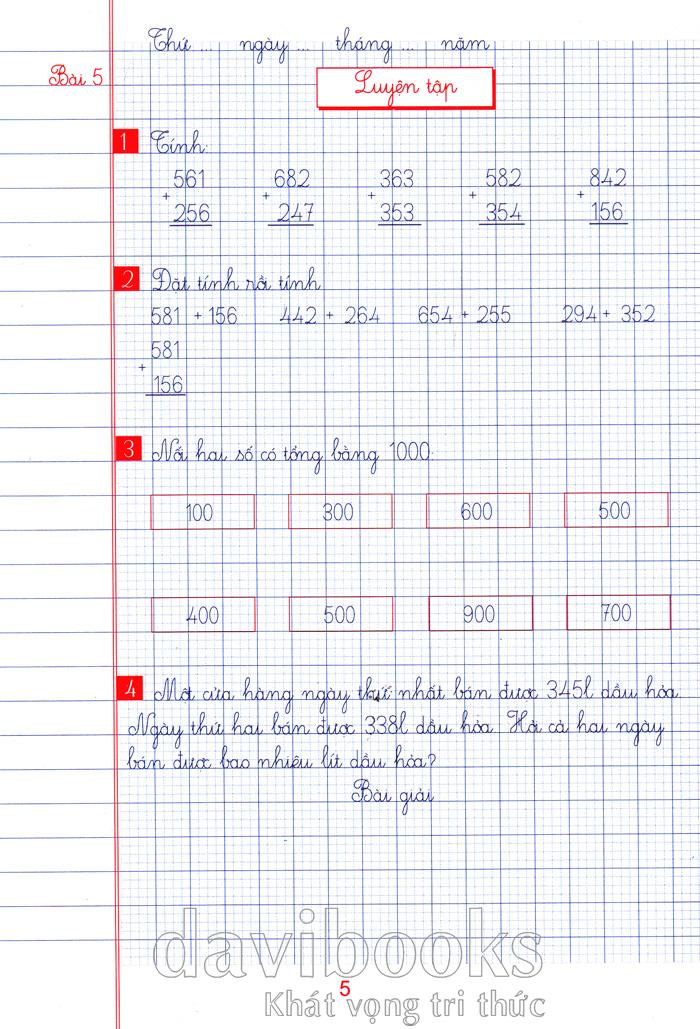 Thứ ... ngày ... tháng ... năm
Bài 5
Luyện tập
1 Tính:
561 682 363 582 842
+ + + + +
256 247 353 354 156
2 Đặt tính rồi tính
581 + 156 442 + 264 654 + 255 294 + 352
581
+
156
3 Nối hai số có tổng bằng 1000:
100 300 600 500
400 500 900 700
4 Một cửa hàng ngày thứ nhất bán được 345l dầu hỏa.
Ngày thứ hai bán được 338l dầu hỏa. Hỏi cả hai ngày
bán được bao nhiêu lít dầu hỏa?
Bài giải
davibooks
5
Khát vọng tri thức